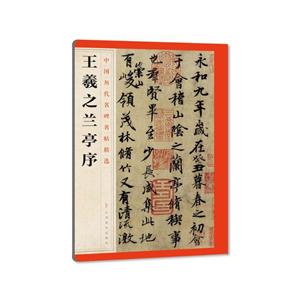 王羲之兰亭序
中国历代名碑名帖精选
永和九年歲在癸丑暮春之初會
于會稽山陰之蘭亭脩稧事
也群賢畢至少長咸集此地
有崇山峻領茂林脩竹又有清流激